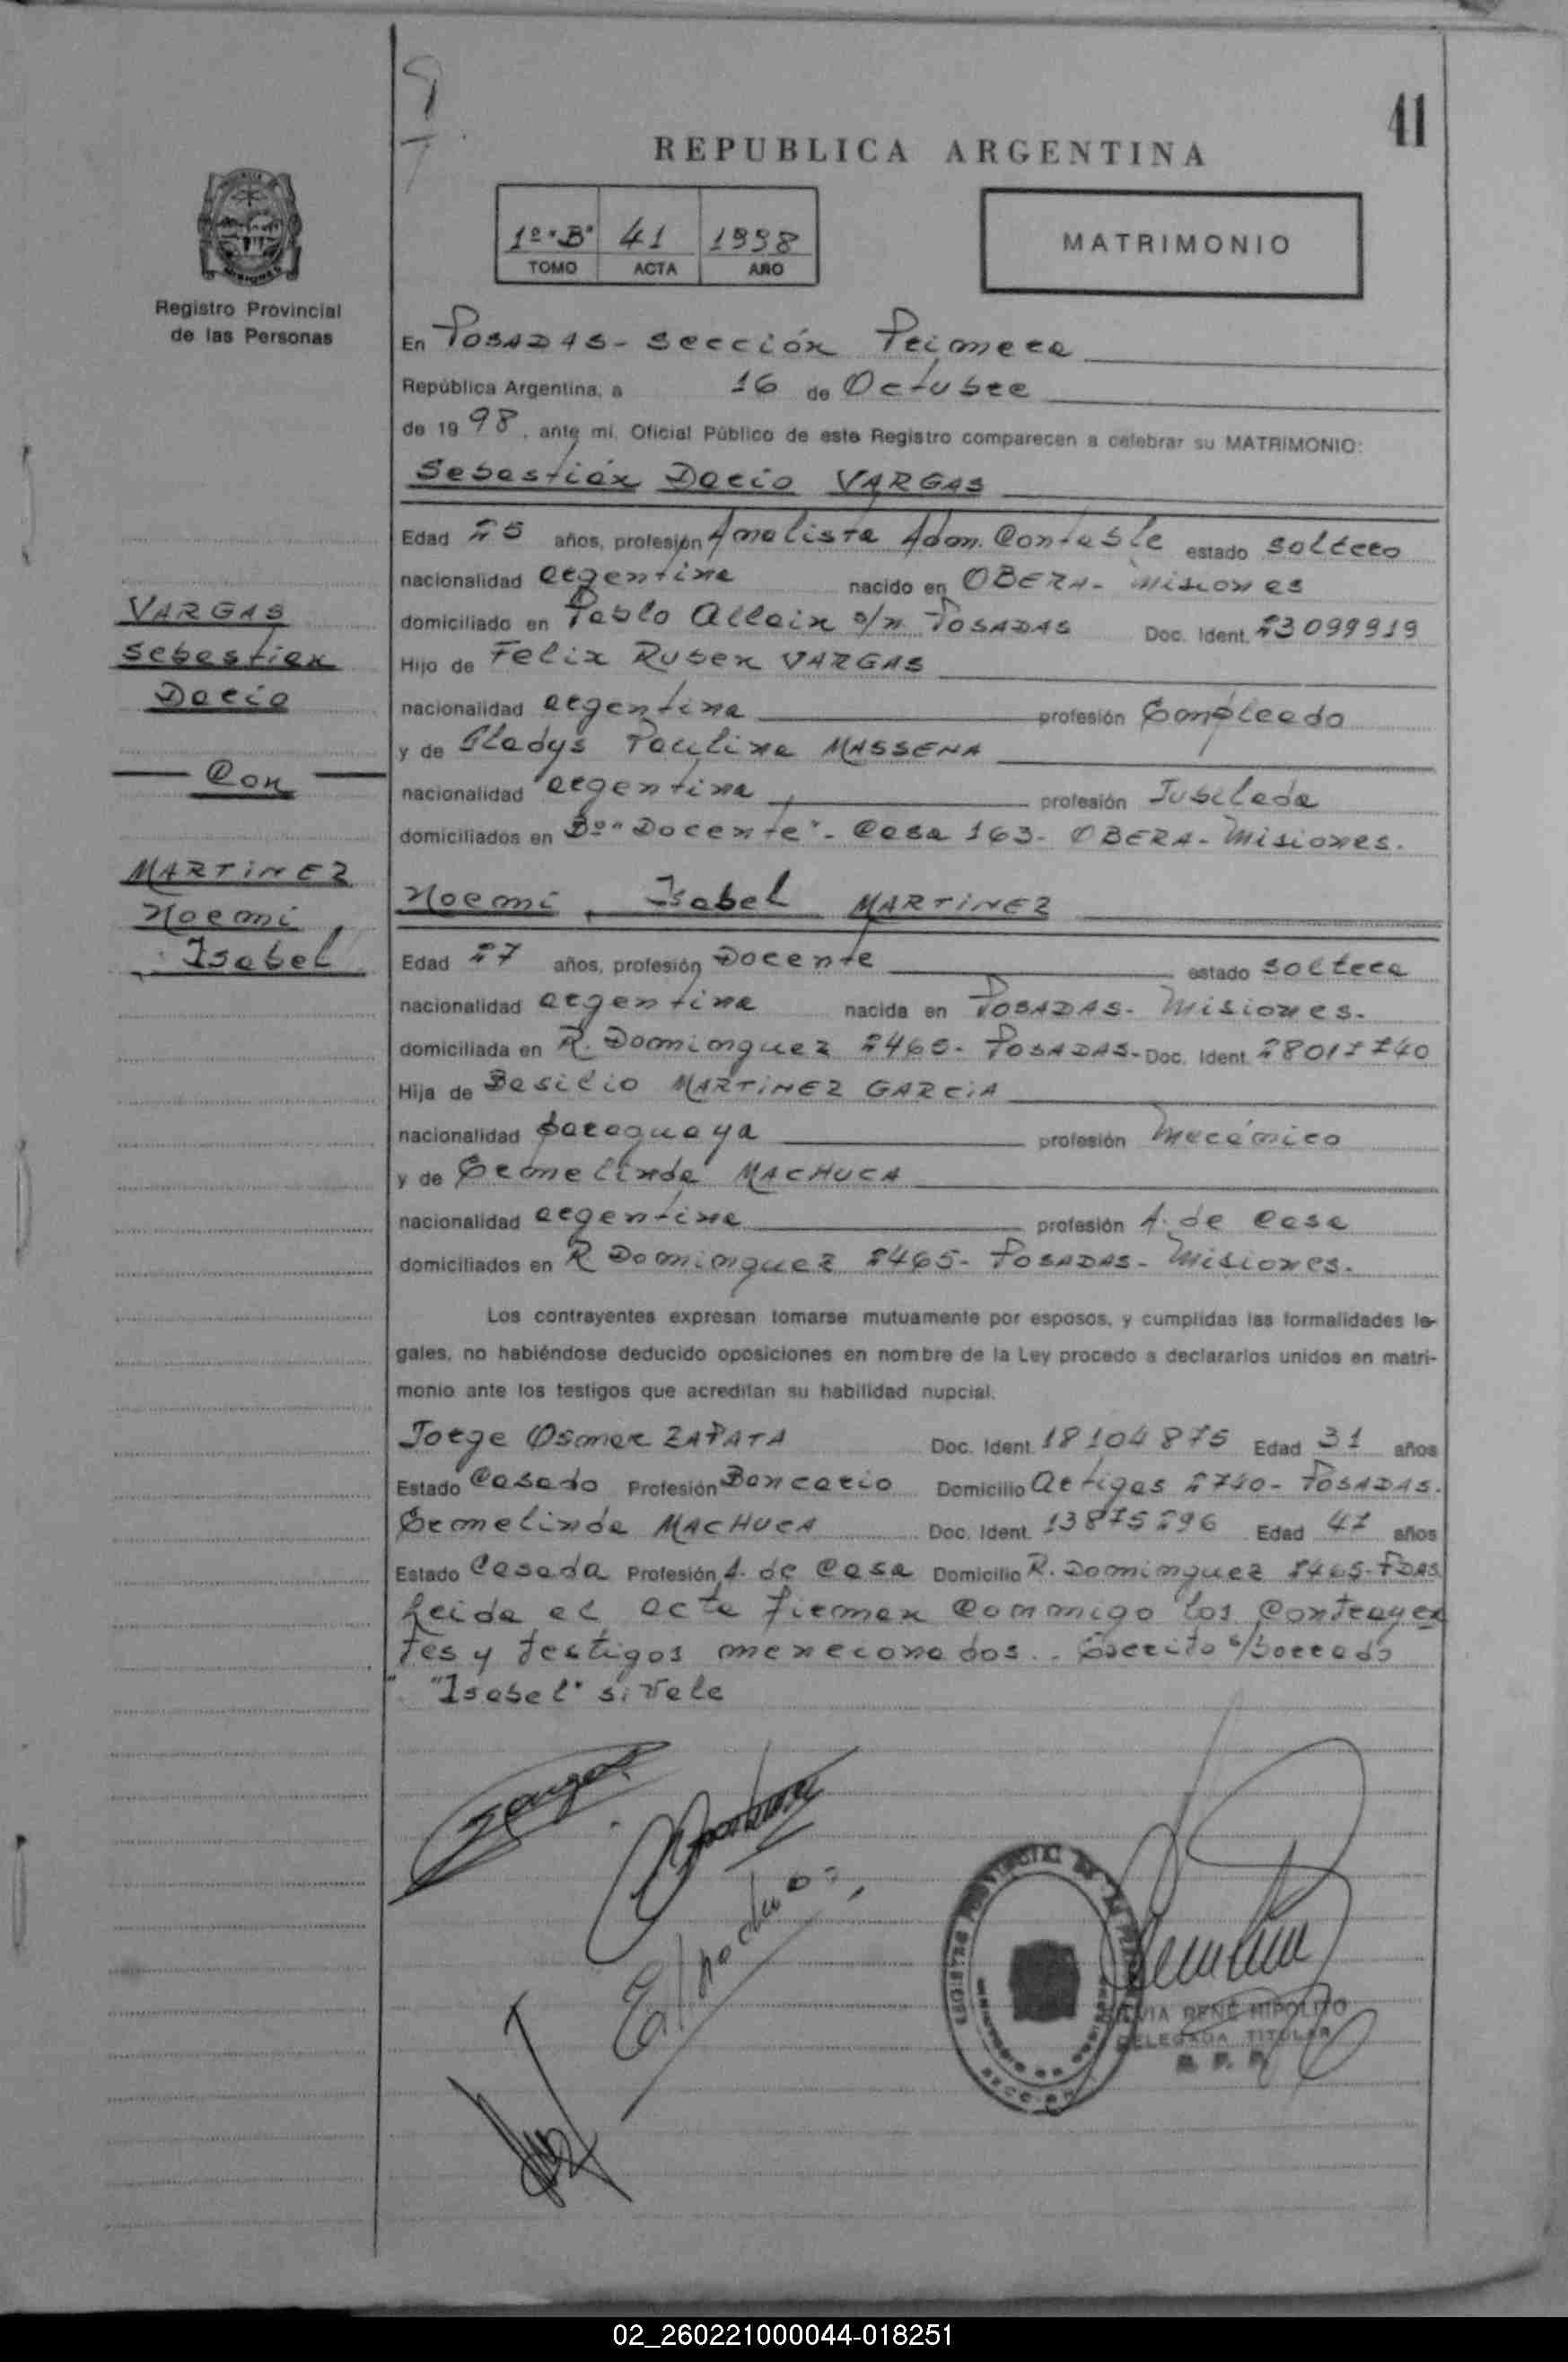 41
REPUBLICA ARGENTINA
1º "B" 41 1998
TOMO ACTA AÑO
MATRIMONIO
Registro Provincial
de las Personas
En POSADAS - Sección Primera
República Argentina, a 16 de Octubre
de 1998, ante mi, Oficial Público de este Registro comparecen a celebrar su MATRIMONIO:
Sebastián Dario VARGAS
Edad 25 años, profesión Analista Adm. Contable estado soltero
nacionalidad argentina nacido en OBERA - Misiones
domiciliado en Pablo Allain s/n POSADAS Doc. Ident. 23099919
Hijo de Felix Ruben VARGAS
nacionalidad argentina profesión Empleado
y de Gladys Paulina MASSENA
nacionalidad argentina profesión Jubilada
domiciliados en Bº "Docente" - Casa 163 - OBERA - Misiones.
VARGAS
Sebastian
Dario
Con
MARTINEZ
Noemi
Isabel
Noemi Isabel MARTINEZ
Edad 27 años, profesión Docente estado soltera
nacionalidad argentina nacida en POSADAS - Misiones.
domiciliada en R. Dominguez 2465 - POSADAS - Doc. Ident.
Hija de Basilio MARTINEZ GARCIA
nacionalidad paraguaya profesión Mecánico
y de Ermelinda MACHUCA
nacionalidad argentina profesión A. de Casa
domiciliados en R Dominguez 2465 - POSADAS - Misiones.
Los contrayentes expresan tomarse mutuamente por esposos, y cumplidas las formalidades le-
gales, no habiéndose deducido oposiciones en nombre de la Ley procedo a declararlos unidos en matri-
monio ante los testigos que acreditan su habilidad nupcial.
Jorge Osmar ZAPATA Doc. Ident. 18104875 Edad 31 años
Estado Casado Profesión Bancario Domicilio Artigas 2740 - POSADAS.
Ermelinda MACHUCA Doc. Ident. 13875296 Edad 47 años
Estado Casada Profesión A. de Casa Domicilio R. Dominguez 2465 - PDAS
Leida el acta firman conmigo los contrayen
tes y testigos menecionados.. Escrito s/borrado
"Isabel" si vale
REGISTRO PROVINCIAL DE LAS PERSONAS
SILVIA RENE HIPOLITO
DELEGADA TITULAR
R. P. P.
02_260221000044-018251